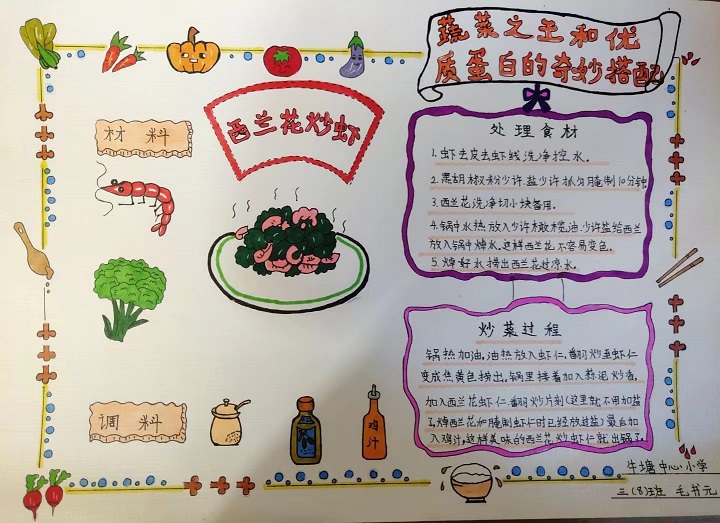 蔬菜之王和优
质蛋白的奇妙搭配
材料
西兰花炒虾
处理食材
1.虾去皮去虾线洗净控水。
2.黑胡椒粉少许,盐少许抓匀腌制10分钟
3.西兰花洗净切小块备用。
4.锅中水热放入少许橄榄油,少许盐给西兰
放入锅中焯水,这样西兰花不容易变色。
5.焯好水捞出西兰花过凉水。
炒菜过程
锅热加油,油热放入虾仁,翻炒至虾仁
变成焦黄色捞出,锅里接着加入蒜泥炒香,
加入西兰花虾仁,翻炒片刻(这里就不用加盐
了,焯西兰花和腌制虾仁时已经放过盐)最后加
入鸡汁,这样美味的西兰花炒虾仁就出锅了。
调料
鸡汁
牛塘中心小学
三(8)班 毛书元